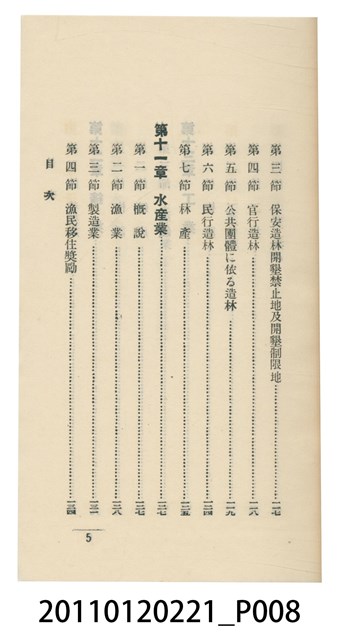 第三節 保安造林開墾禁止地及開墾制限地……一一七
第四節 官行造林……一一八
第五節 公共團體に依る造林……一一九
第六節 民行造林……一二四
第七節 林產……一二五
第十一章 水產業……一二七
第一節 概說……一二七
第二節 漁業……一二八
第三節 製造業……一三一
第四節 漁民移住獎勵……一三四
目次
5
20110120221_P008